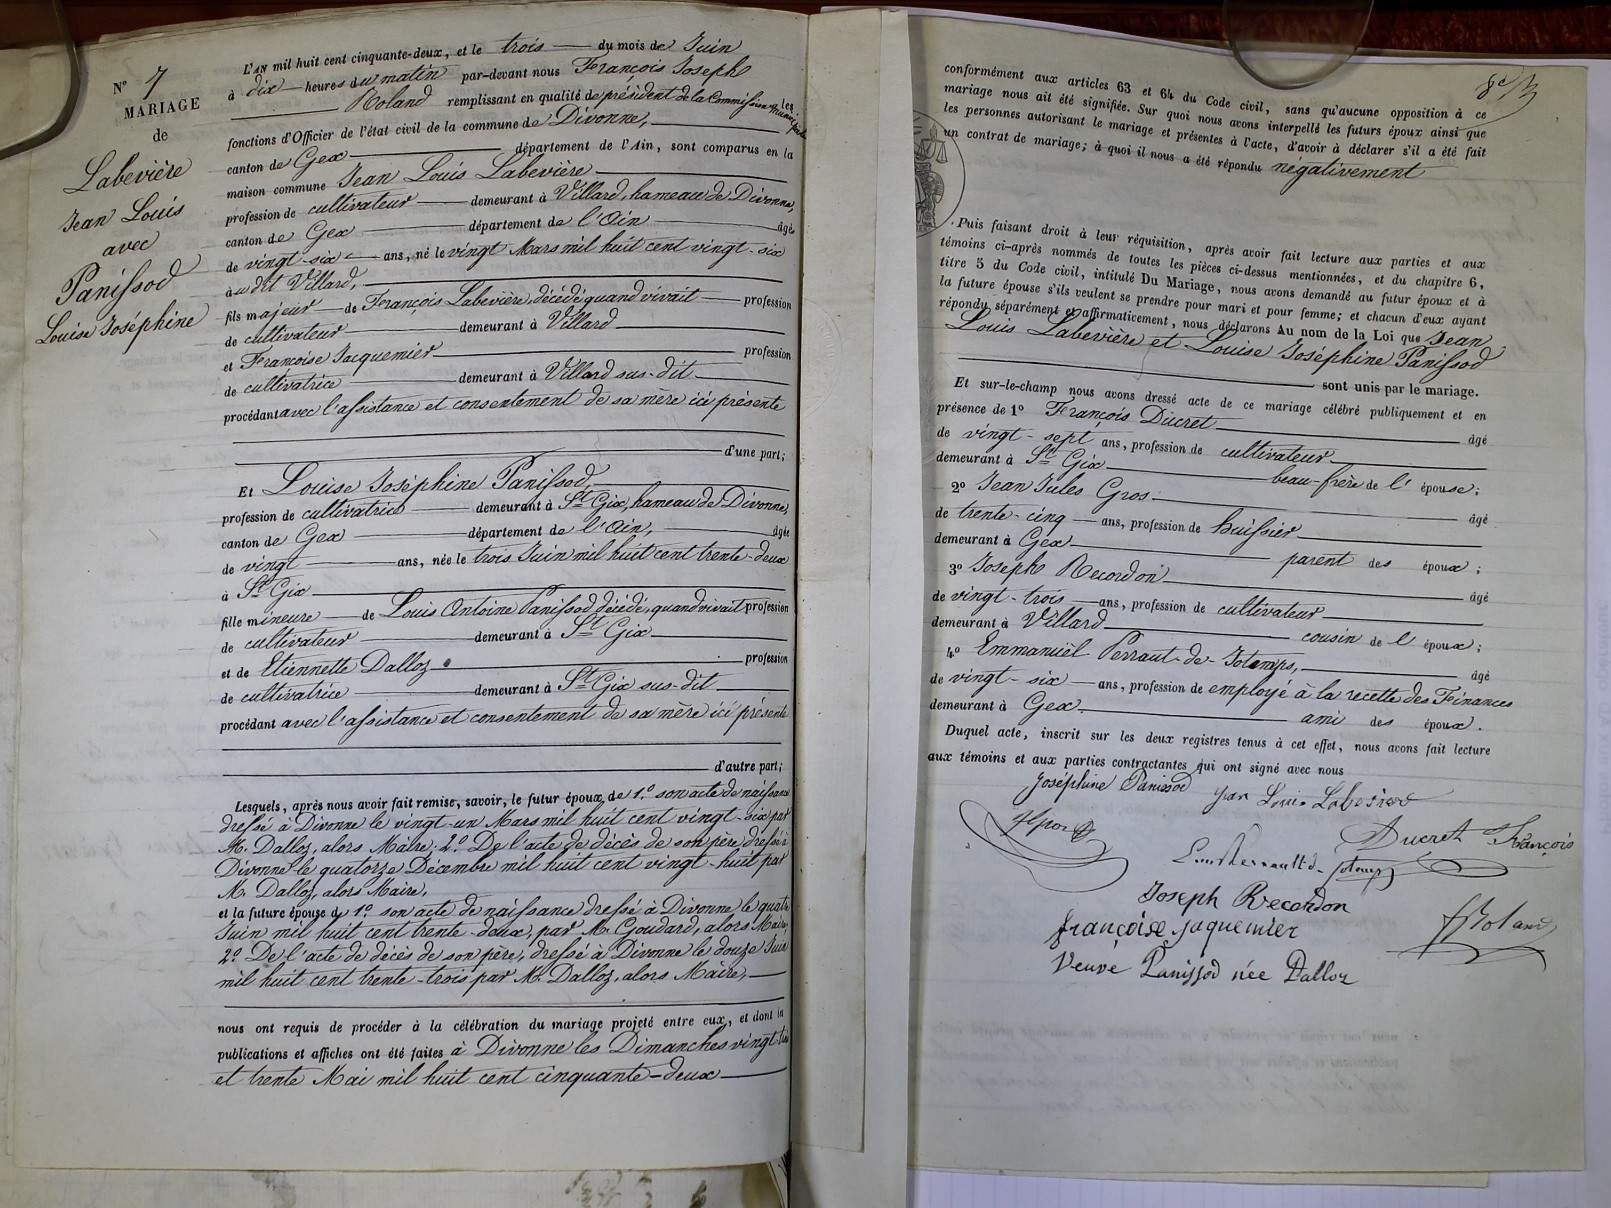 N° 7
MARIAGE
de
Labevière
Jean Louis
avec
Panissod
Louise Joséphine
L'AN mil huit cent cinquante-deux, et le trois du mois de Juin
à dix heures du matin par-devant nous François Joseph
Roland remplissant en qualité de président de la Commission municipale les
fonctions d'Officier de l'état civil de la commune de Divonne,
canton de Gex département de l'Ain, sont comparus en la
maison commune Jean Louis Labevière
profession de cultivateur demeurant à Villard, hameau de Divonne,
canton de Gex département de l'Ain âgé
de vingt-six ans, né le vingt Mars mil huit cent vingt-six
à udit Villard,
fils majeur de François Labevière, décédé, quand vivait profession
de cultivateur demeurant à Villard
et Françoise Jacquemier profession
de cultivatrice demeurant à Villard sus-dit
procédant avec l'assistance et consentement de sa mère ici présente
d'une part;
Et Louise Joséphine Panissod,
profession de cultivatrice demeurant à St Gix, hameau de Divonne,
canton de Gex département de l'Ain, âgée
de vingt ans, née le trois Juin mil huit cent trente-deux
à St Gix
fille mineure de Louis Antoine Panissod décédé, quand vivait profession
de cultivateur demeurant à St Gix
et de Etiennette Dalloz profession
de cultivatrice demeurant à St Gix sus-dit
procédant avec l'assistance et consentement de sa mère ici présente
d'autre part;
Lesquels, après nous avoir fait remise, savoir, le futur époux, de 1.° son acte de naissance
dressé à Divonne le vingt-un Mars mil huit cent vingt-six par
M. Dalloz, alors Maire; 2.° De l'acte de décès de son père dressé à
Divonne le quatorze Décembre mil huit cent vingt-huit par
M. Dalloz, alors Maire,
et la future épouse de 1.° son acte de naissance dressé à Divonne le quatre
Juin mil huit cent trente-deux, par M. Goudard, alors Maire;
2.° De l'acte de décès de son père, dressé à Divonne le douze Juin
mil huit cent trente-trois par M. Dalloz, alors Maire,
nous ont requis de procéder à la célébration du mariage projeté entre eux, et dont les
publications et affiches ont été faites à Divonne les Dimanches vingt-trois
et trente Mai mil huit cent cinquante-deux
conformément aux articles 63 et 64 du Code civil, sans qu'aucune opposition à ce
mariage nous ait été signifiée. Sur quoi nous avons interpellé les futurs époux ainsi que
les personnes autorisant le mariage et présentes à l'acte, d'avoir à déclarer s'il a été fait
un contrat de mariage; à quoi il nous a été répondu négativement
Puis faisant droit à leur réquisition, après avoir fait lecture aux parties et aux
témoins ci-après nommés de toutes les pièces ci-dessus mentionnées, et du chapitre 6,
titre 5 du Code civil, intitulé Du Mariage, nous avons demandé au futur époux et à
la future épouse s'ils veulent se prendre pour mari et pour femme; et chacun d'eux ayant
répondu séparément et affirmativement, nous déclarons Au nom de la Loi que Jean
Louis Labevière et Louise Joséphine Panissod
sont unis par le mariage.
Et sur-le-champ nous avons dressé acte de ce mariage célébré publiquement et en
présence de 1° François Ducret âgé
de vingt-sept ans, profession de cultivateur
demeurant à St Gix beau-frère de l'épouse;
2° Jean Jules Gros âgé
de trente-cinq ans, profession de huissier
demeurant à Gex parent des époux;
3° Joseph Recordon âgé
de vingt-trois ans, profession de cultivateur
demeurant à Villard cousin de l'époux;
4° Emmanuel Perraut-de-Jotemps, âgé
de vingt-six ans, profession de employé à la recette des Finances
demeurant à Gex. ami des époux.
Duquel acte, inscrit sur les deux registres tenus à cet effet, nous avons fait lecture
aux témoins et aux parties contractantes qui ont signé avec nous
Joséphine Panissod Jean Louis Labevière
Ducret François
Joseph Recordon
françoise jaquemier
FRoland
Veuve Panissod née Dalloz